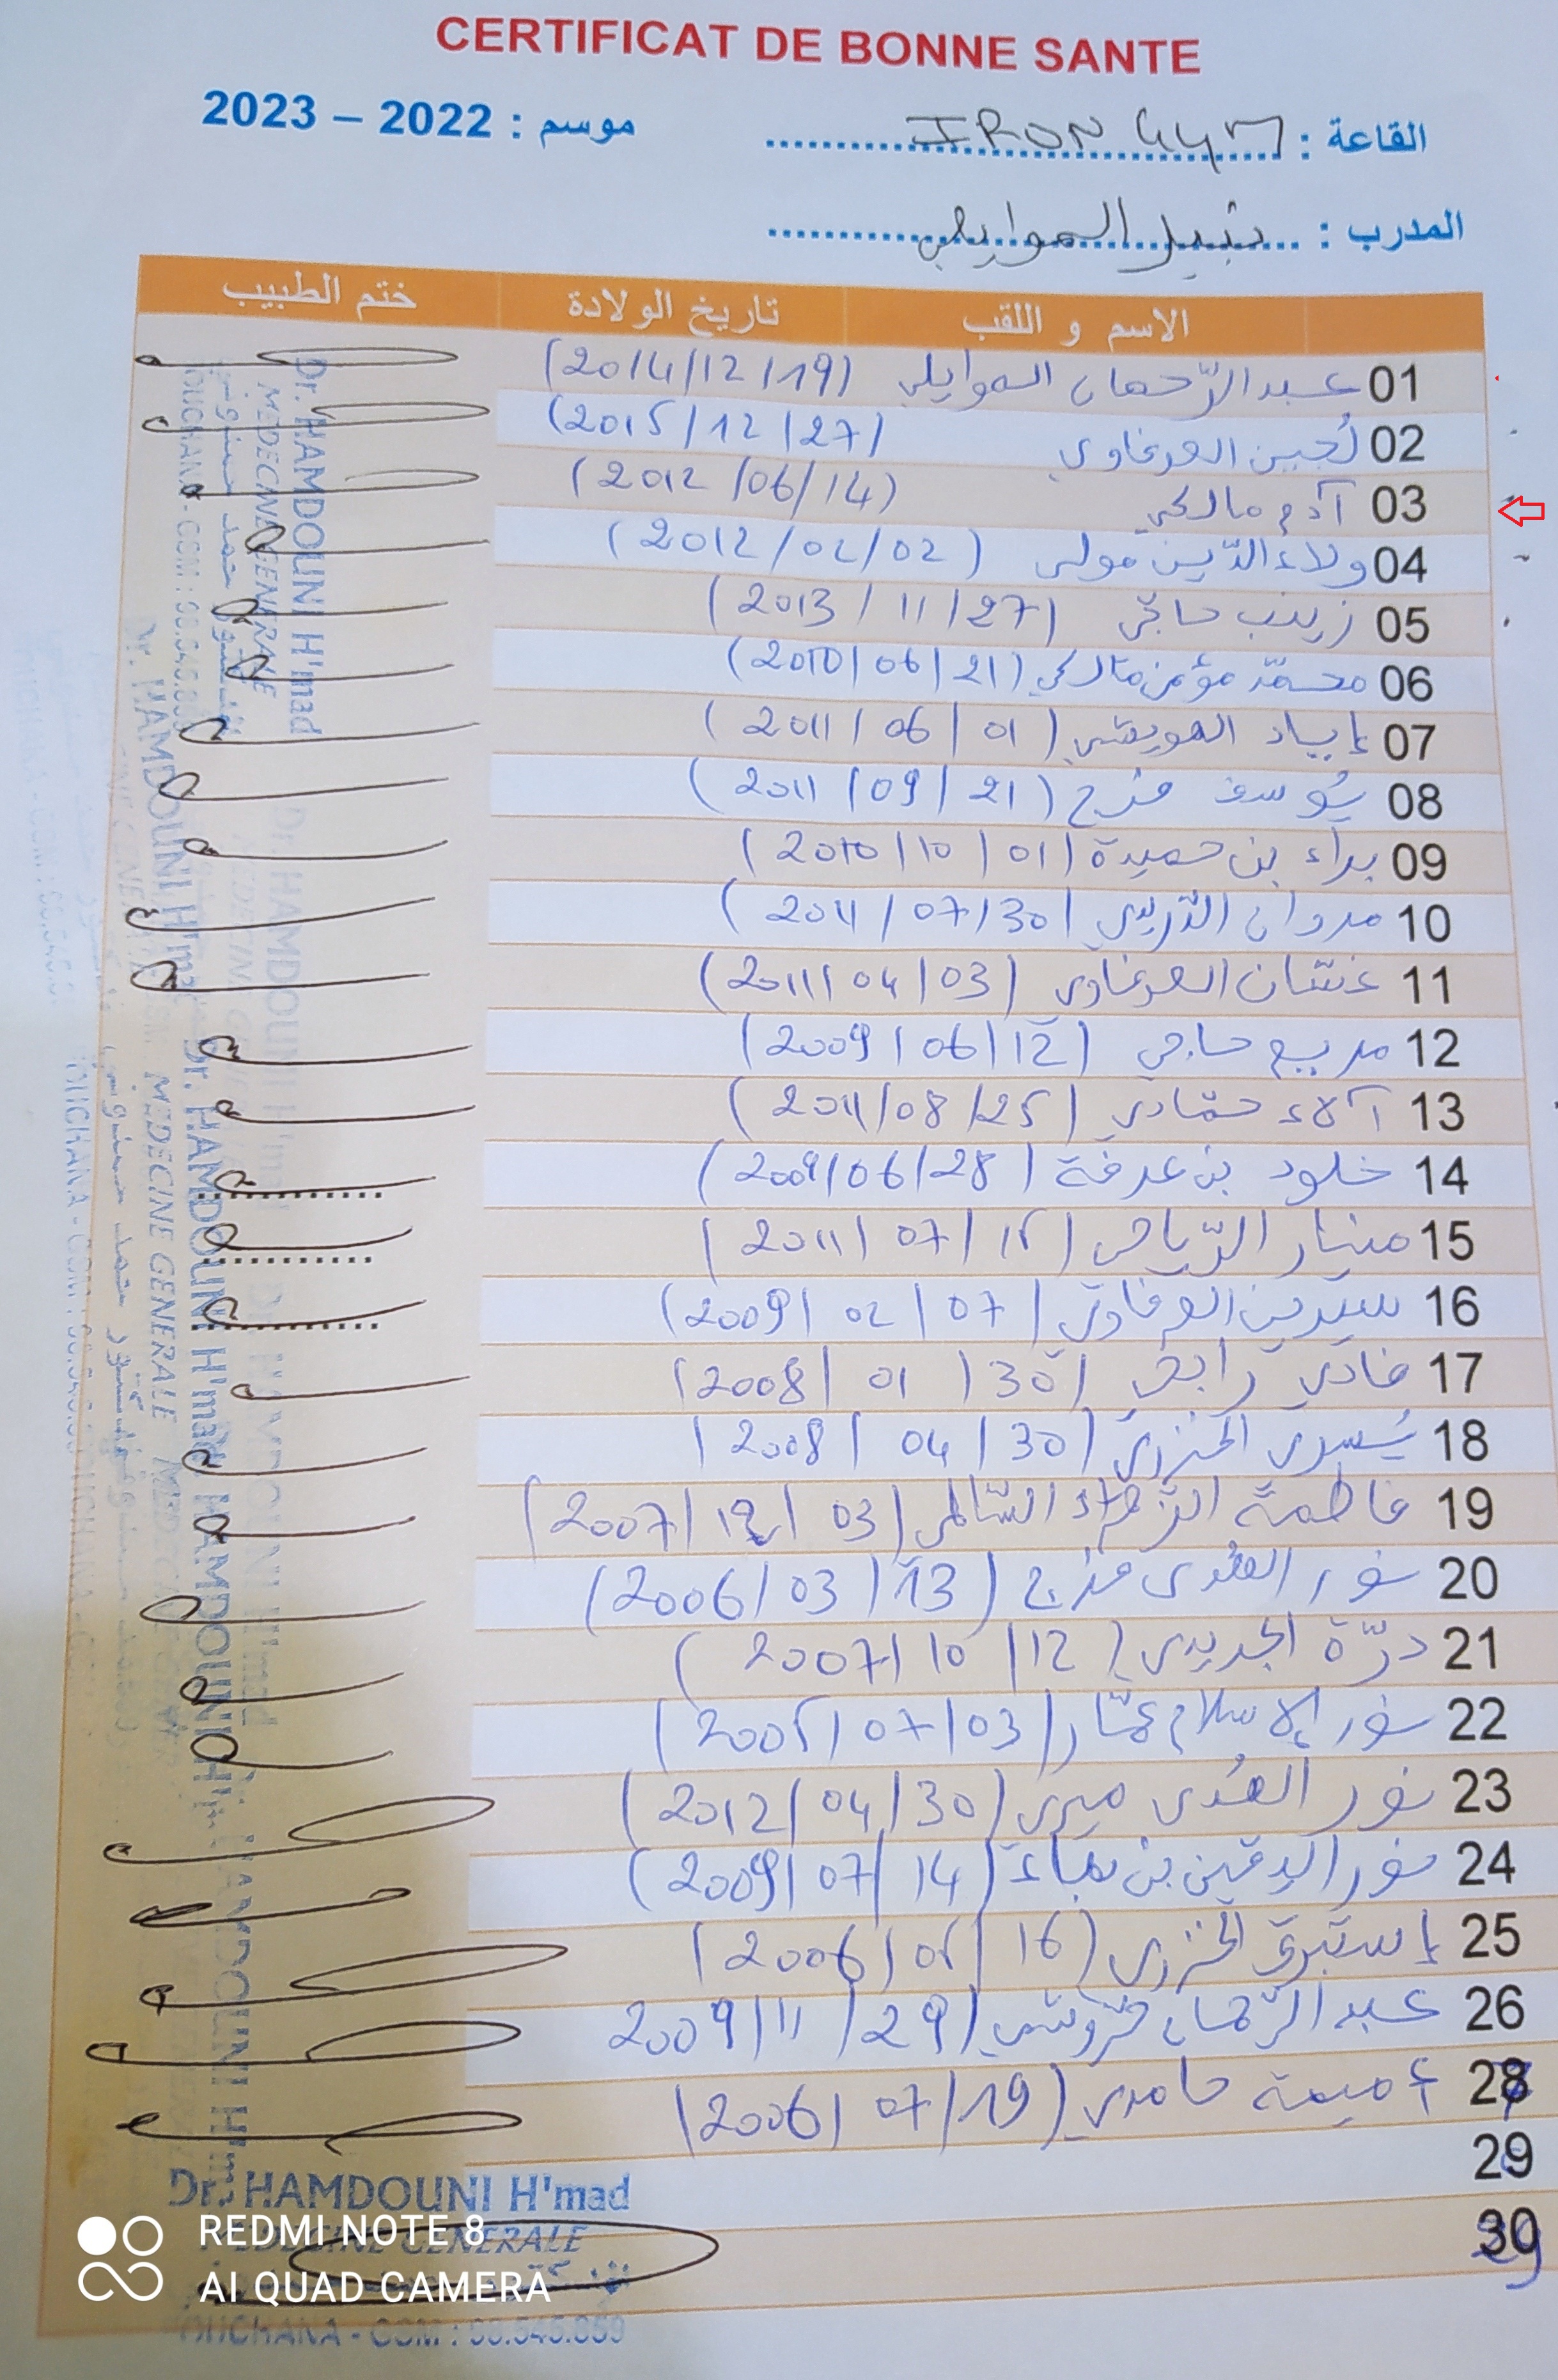 CERTIFICAT DE BONNE SANTE
القاعة : IRON GYM
موسم : 2022 – 2023
المدرب : نبيل الموايلي
الاسم و اللقب تاريخ الولادة ختم الطبيب
01 عبد الرّحمان الموايلي (2014/12/19)
02 لُجين العرفاوي (2015/12/27)
03 آدم مالكي (2012/06/14)
04 ولاء الدّين مولى (2012/02/02)
05 زينب حاجّي (2013/11/27)
06 محمّد مؤمن مالكي (2010/06/21)
07 إياد العويشي (2011/06/01)
08 يُوسف فرج (2011/09/21)
09 براء بن حميدة (2010/10/01)
10 مروان الدّريدي (2011/07/30)
11 غسّان العرفاوي (2011/04/03)
12 مريم حاجي (2009/06/12)
13 آلاء حمّادي (2011/08/25)
14 خلود بن عرفة (2009/06/28)
15 منار الرّياحي (2011/07/15)
16 سيرين العرفاوي (2009/02/07)
17 فادي رابحي (2008/01/30)
18 يُسرى الخزري (2008/04/30)
19 فاطمة الزّهراء السّالمي (2007/12/03)
20 نور الهُدى فرج (2006/03/13)
21 درّة الجديدي (2007/10/12)
22 نور الإسلام عمّار (2005/07/03)
23 نور الهُدى ميري (2012/04/30)
24 نور اليقين بن (2009/07/14)
25 إستبرق الخزري (2006/05/16)
26 عبد الرّحمان (2009/11/29
28 أميمة حامدي (2006/07/19)
29
30
Dr. HAMDOUNI H'mad
MEDECINE GENERALE
BOUCHANA - GSM : 98.545.859
REDMI NOTE 8
AI QUAD CAMERA